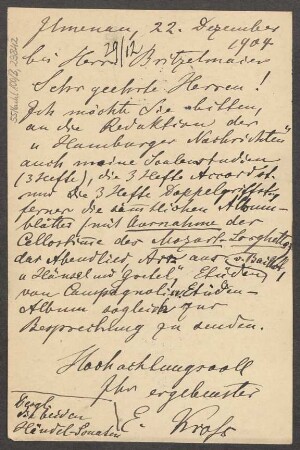 Ilmenau, 22. Dezember
1904
29/12
bei Herrn Britzelmaier
Sehr geehrte Herren!
Ich möchte Sie bitten,
an die Redaktion der
„Hamburger Nachrichten"
auch meine Scalenstudien
(3 Hefte), die 3 Hefte Accord st.
und die 3 Hefte Doppelgriffstg.
ferner die sämtlichen Album-
blätter (mit Ausnahme der
Cellostücke der Mozart-Larghettos,
der Abendlied Arie aus
„Hänsel und Gretel" Etüden
von Campagnoli, u. Etüden-
Album sogleich zur
Besprechung zu senden.
Hochachtungsvoll
Ihr ergebenster
E. Kross
Desgl.
die beiden
Händel-Sonaten